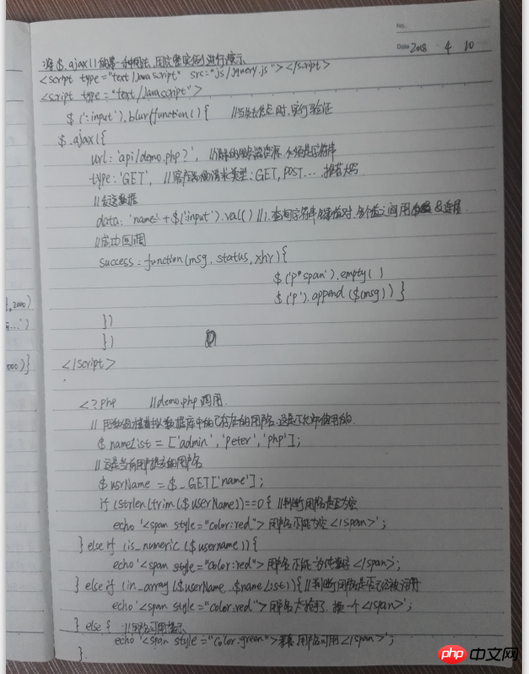 No.
Date 2018 4 10
$.ajax()的第一种用法,用注册实例进行演示
<script type="text/javascript" src="js/jquery.js"></script>
<script type="text/javascript">
$(':input').blur(function(){ //当失去焦点时,实行验证
$.ajax({
url:'api/demo.php?', //请求的
type:'GET', //客户端的请求类型:GET,POST...推荐大写
//发送数据
data:'name='+$('input').val() //1.查询字符串 键值对,每个值之间用 &连接
//成功回调
success:function(msg,status,xhr){
$('p span').empty()
$('p').append($(msg))}
})
})
</script>
<?php //demo.php调用
//用数组 数据库中的已存在的用户名,这是不允许使用的
$nameList = ['admin','peter','php'];
//这是当前用户提交的用户名
$usrName = $_GET['name'];
if (strlen(trim($userName))==0 { //判断用户名是否为空
echo '<span style="color:red">用户名不能为空</span>';
} else if (is_numeric($username)){
echo '<span style="color:red">用户名不能为纯数字</span>;
} else if (in_array($userName,$nameList)){ //判断用户名是否已被注册
echo '<span style="color:red">用户名太抢手了,换一个</span>';
} else { //用户名可用提示
echo '<span style="color:green"> 用户名可用</span>';
}
2000)
...')
000)}
php 中文网